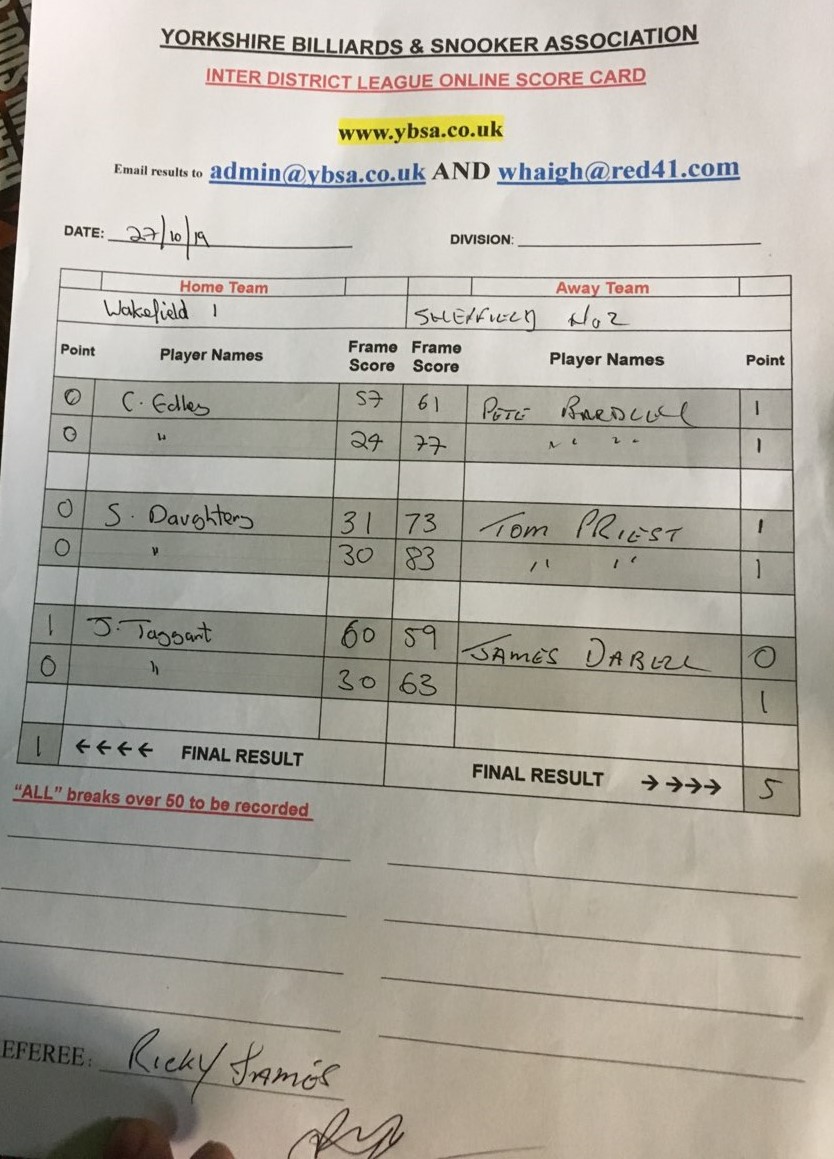 YORKSHIRE BILLIARDS & SNOOKER ASSOCIATION
INTER DISTRICT LEAGUE ONLINE SCORE CARD
www.ybsa.co.uk
Email results to admin@ybsa.co.uk AND whaigh@red41.com
DATE: 27/10/19 DIVISION:
Home Team Away Team
Wakefield 1 SHEFFIELD No 2
Point Player Names Frame Score Frame Score Player Names Point
0 C. Edley 57 61 PETE 1
0 " 24 77 " " 1
0 S. Daughtery 31 73 TOM PRIEST 1
0 " 30 83 " " 1
1 J. Taggart 60 59 JAMES 0
0 " 30 63 1
1 ←←←← FINAL RESULT FINAL RESULT →→→→ 5
"ALL" breaks over 50 to be recorded
EFEREE: RICKY